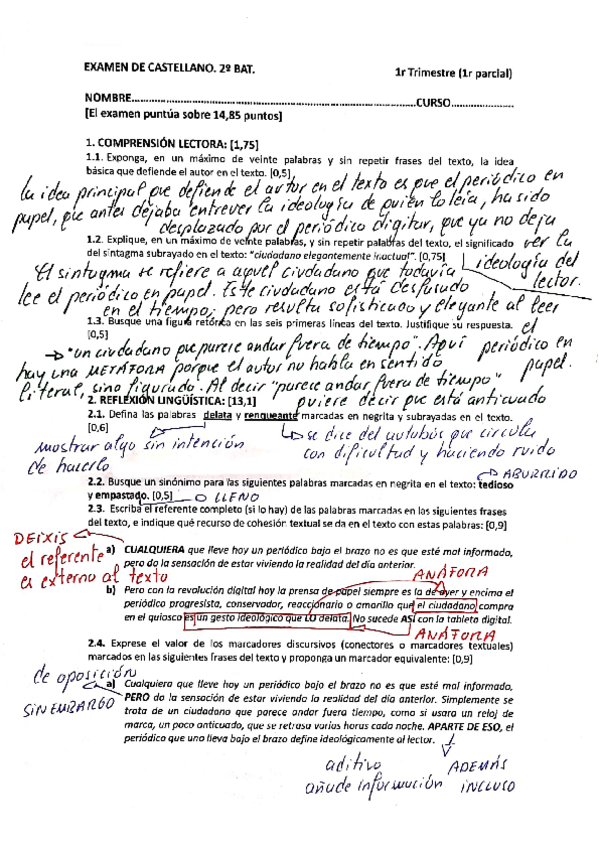 EXAMEN DE CASTELLANO. 2º BAT.
1r Trimestre (1r parcial)
NOMBRE..........................................................................................CURSO....................
[El examen puntúa sobre 14,85 puntos]
1. COMPRENSIÓN LECTORA: [1,75]
1.1. Exponga, en un máximo de veinte palabras y sin repetir frases del texto, la idea
básica que defiende el autor en el texto. [0,5]
la idea principal que defiende el autor en el texto es que el periódico en
papel, que antes dejaba entrever la ideología de quien lo leía, ha sido
desplazado por el periódico digitar, que ya no deja
ver la
ideología del
lector.
1.2. Explique, en un máximo de veinte palabras, y sin repetir palabras del texto, el significado
del sintagma subrayado en el texto: "ciudadano elegantemente inactual". [0,75]
El sintagma se refiere a aquel ciudadano que todavía
lee el periódico en papel. Este ciudadano está desfasado
en el tiempo, pero resulta sofisticado y elegante al leer
el
periódico en
papel.
1.3. Busque una figura retórica en las seis primeras líneas del texto. Justifique su respuesta.
[0,5]
"un ciudadano que parece andar fuera de tiempo". Aquí
hay una METÁFORA porque el autor no habla en sentido
literal, sino figurado. Al decir "parece andar fuera de tiempo"
quiere decir que está anticuado
2. REFLEXIÓN LINGÜÍSTICA: [13,1]
2.1. Defina las palabras delata y renqueante marcadas en negrita y subrayadas en el texto.
[0,6]
mostrar algo sin intención
de hacerlo
se dice del autobús que circula
con dificultad y haciendo ruido
2.2. Busque un sinónimo para las siguientes palabras marcadas en negrita en el texto: tedioso
y empastado. [0,5]
ABURRIDO
LLENO
2.3. Escriba el referente completo (si lo hay) de las palabras marcadas en las siguientes frases
del texto, e indique qué recurso de cohesión textual se da en el texto con estas palabras: [0,9]
DEIXIS
el referente
es externo al texto
a) CUALQUIERA que lleve hoy un periódico bajo el brazo no es que esté mal informado,
pero da la sensación de estar viviendo la realidad del día anterior.
ANÁFORA
b) Pero con la revolución digital hoy la prensa de papel siempre es la de ayer y encima el
periódico progresista, conservador, reaccionario o amarillo que el ciudadano compra
en el quiosco es un gesto ideológico que LO delata. No sucede ASÍ con la tableta digital.
ANÁFORA
2.4. Exprese el valor de los marcadores discursivos (conectores o marcadores textuales)
marcados en las siguientes frases del texto y proponga un marcador equivalente: [0,9]
de oposición
SIN EMBARGO
a) Cualquiera que lleve hoy un periódico bajo el brazo no es que esté mal informado,
PERO da la sensación de estar viviendo la realidad del día anterior. Simplemente se
trata de un ciudadano que parece andar fuera tiempo, como si usara un reloj de
marca, un poco anticuado, que se retrasa varias horas cada noche. APARTE DE ESO, el
periódico que uno lleva bajo el brazo define ideológicamente al lector.
aditivo
añade información
ADEMÁS
INCLUSO